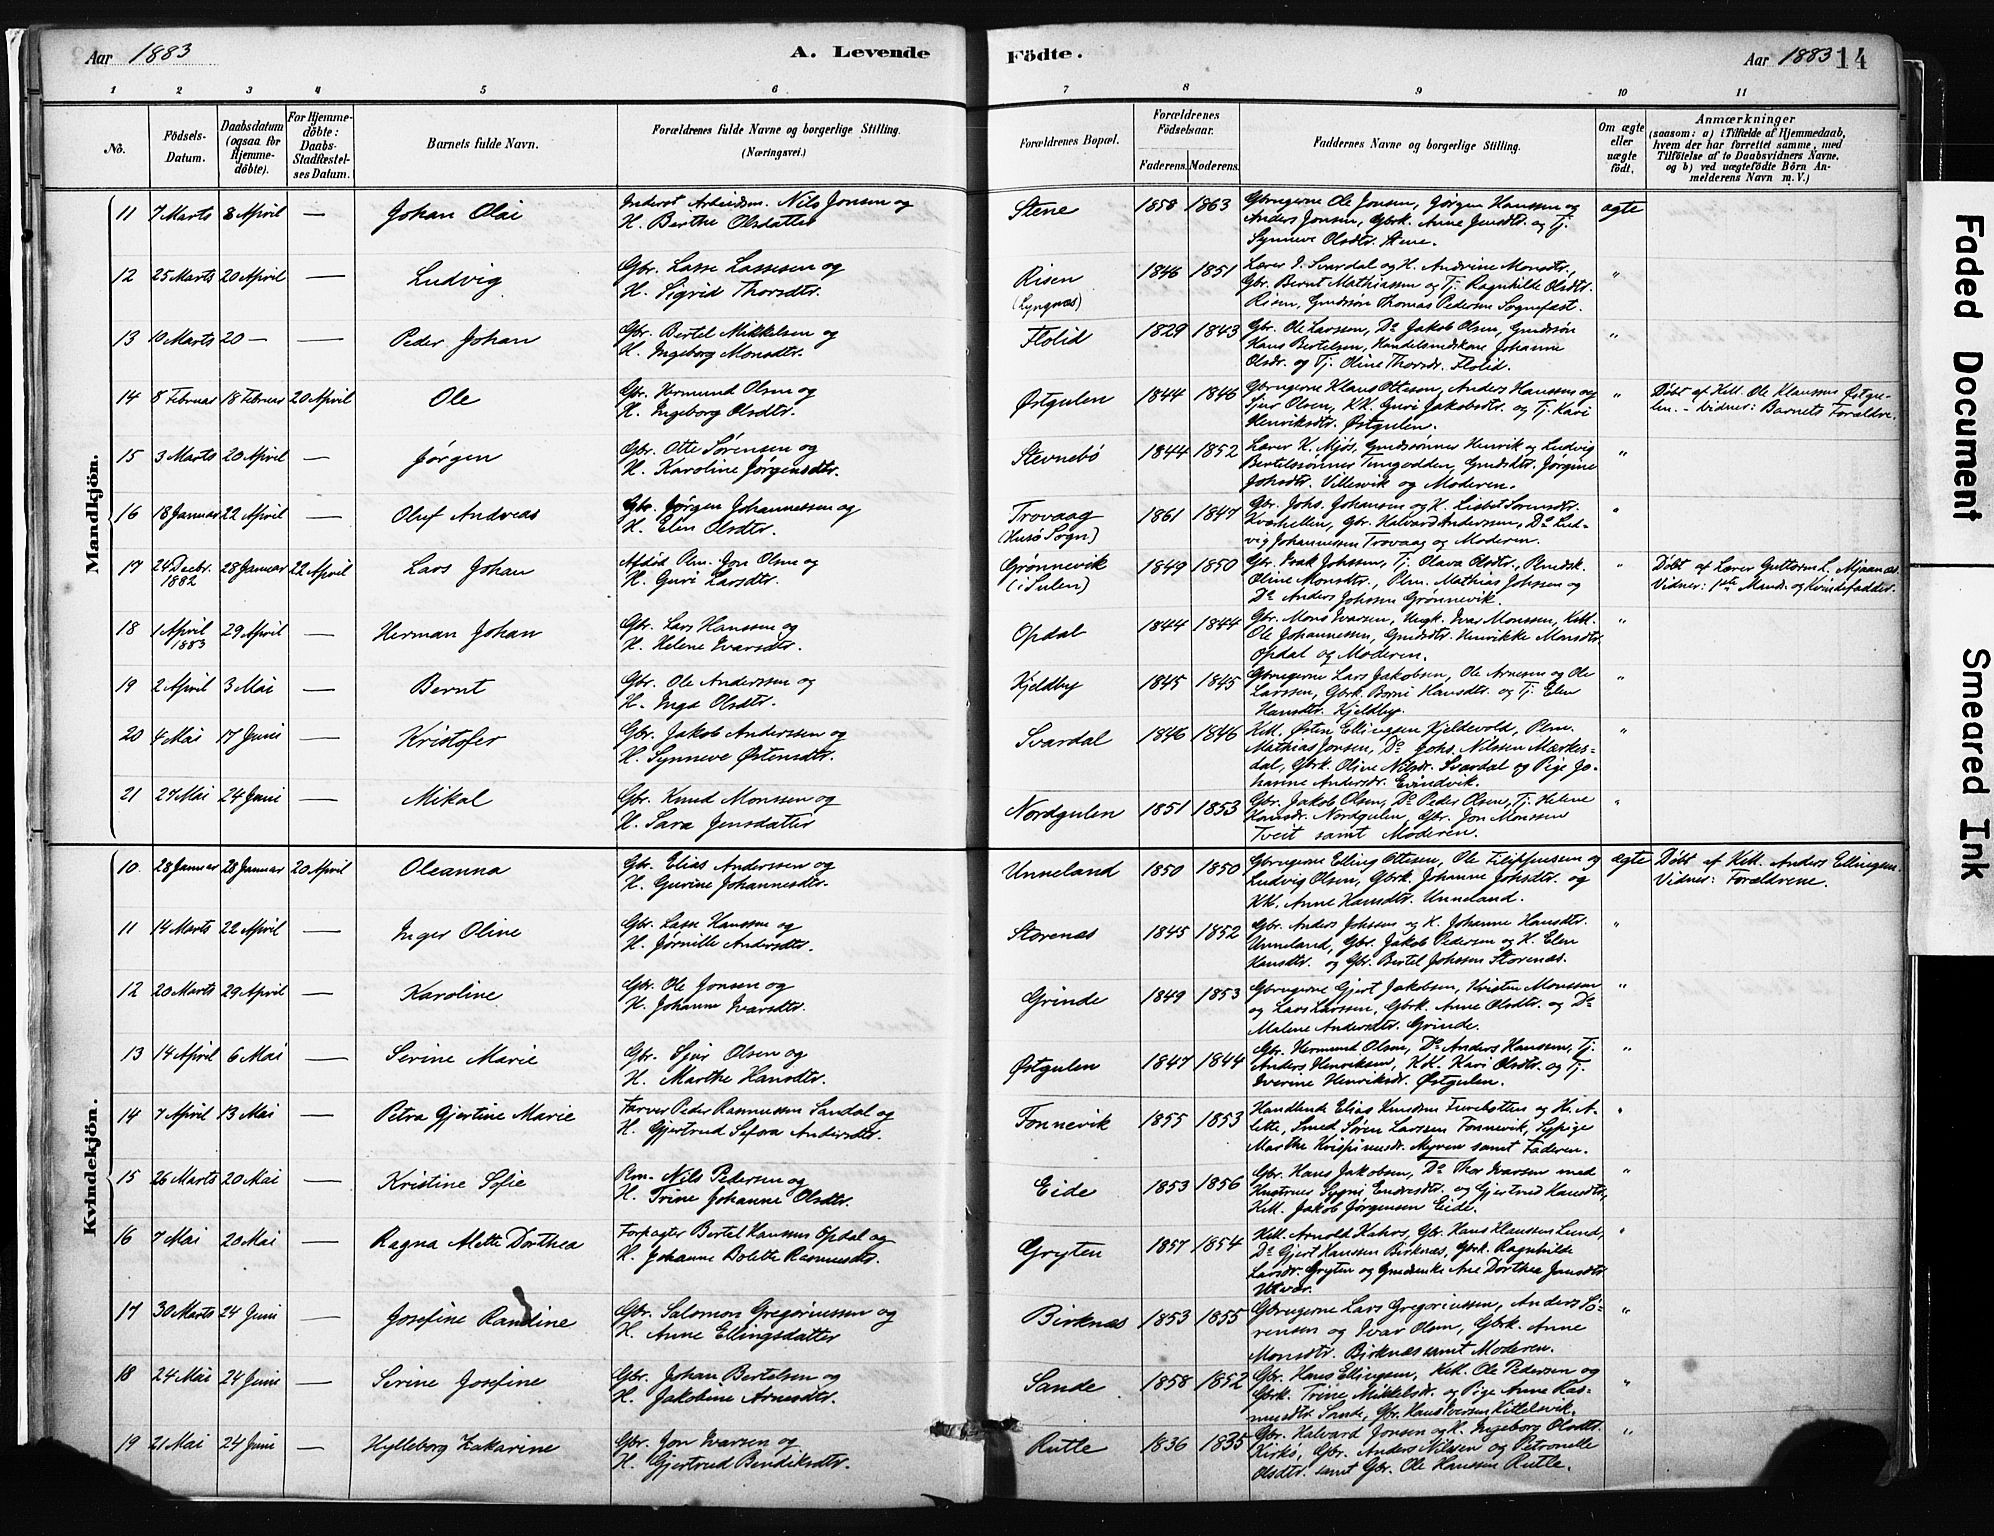 Aar 1883
A. Levende Födte.
Aar 1883 14
1 2 3 4 5 6 7 8 9 10 11
No.
Födsels-Datum.
Daabsdatum (ogsaa for Hjemmedöbte).
For Hjemmedöbte: Daabs-Stadfæstelses Datum.
Barnets fulde Navn.
Forældrenes fulde Navne og borgerlige Stilling.
(Næringsvei.)
Forældrenes Bopæl.
Forældrenes Födselsaar.
Faderens. Moderens.
Faddernes Navne og borgerlige Stilling.
Om ægte eller uægte födt.
Anmærkninger
(saasom: a) i Tilfælde af Hjemmedaab, hvem der har forrettet samme, med Tilföielse af to Daabsvidners Navne, og b) ved uægtefödte Börn Anmelderens Navn m. V.)
Mandkjön.
11 7 Marts 8 April — Johan Olai Inderst Arbeidsm. Nils Jonsen og H. Berthe Olsdatter Stene 1858 1863 Gbrugerne Ole Jonsen, Jørgen Hanssen og
Anders Jonsen, Gbrk. Anne Jensdtr. og Tj.
Synneve Olsdtr. Stene. ægte
12 25 Marts 20 April — Ludvig Gbr. Lasse Lassesen og H. Sigrid Thorsdtr. Risen (Lyngnæs) 1846 1851 Lærer I. Svardal og H. Andrine Monsdtr.,
Gbr. Bernt Mathiassen og Tj. Ragnhilde Olsdtr.
Risen, Gmdssön Thomas Pedersen Sognefast. "
13 10 Marts 20 — — Peder Johan Gbr. Bertel Mikkelsen og H. Ingeborg Monsdtr. Flolid 1829 1843 Gbr. Ole Larssen, Do Jakob Olsen, Gmdssön
Hans Bertelsen, Handelsmdskone Johanne
Olsdr. og Tj. Oline Thorsdr. Flolid. "
14 8 Februar 18 Februar 20 April Ole Gbr. Hermund Olsen og H. Ingeborg Olsdtr. Østgulen 1844 1846 Gbrugerne Klaus Ottesen, Anders Hanssen og
Sjur Olsen, KK. Guri Jakobsdtr. og Tj. Kari
Henriksdtr. Østgulen. " Döbt af Kitl. Ole Klaussen Østgu-
len. - Vidner: Barnets Forældre.
15 3 Marts 20 April — Jørgen Gbr. Otte Sørensen og H. Karoline Jørgensdtr. Stevnebö 1844 1852 Lærer K. Mjøs, Gmdssönner Henrik og Ludvig
Bertelssönner Tungodden, Gmdsdtr. Jørgine
Johsdtr. Villesvik og Moderen. "
16 18 Januar 22 April — Oluf Andreas Gbr. Jørgen Johannessen og H. Elen Olsdtr. Trovaag (Husö Sogn) 1861 1847 Gbr. Johs. Johansen og H. Lisbet Sörensdtr.
Kverhellen, Gbr. Halvard Anderssen, Do Lud-
vig Johannessen Trovaag og Moderen. "
17 24 Decbr. 1882 28 Januar 22 April Lars Johan Afdöd Plm. Jon Olsen og H. Guri Larsdtr. Grønnevik (i Sulen) 1849 1850 Gbr. Isak Johssen, Tj. Olava Olsdtr., Plmdsk.
Oline Monsdtr., Plm. Mathias Johssen og
Do Anders Johssen Grønnevik. " Döbt af Lærer Guttorm L. Mjaanes.
Vidner: 1ste Mand- og Kvindefadder.
18 1 April 1883 29 April — Herman Johan Gbr. Lars Hanssen og H. Helene Ivarsdtr. Opdal 1844 1844 Gbr. Mons Ivarsen, Ungk. Ivar Monssen, Kitl.
Ole Johannessen, Gmdsdtr. Henrikke Monsdtr.
Opdal og Moderen. "
19 2 April 3 Mai — Bernt Gbr. Ole Anderssen og H. Inga Olsdtr. Kjeldby 1845 1845 Gbrugerne Lars Jakobsen, Ole Arnesen og Ole
Larssen, Gbrk. Börni Hansdtr. og Tj. Elen
Hansdtr. Kjeldby. "
20 4 Mai 17 Juni — Kristofer Gbr. Jakob Anderssen og H. Synneve Østensdtr. Svardal 1846 1846 Kitl. Østen Ellingsen Kjeldevold, Plm.
Mathias Jonsen, Do Johs. Nilssen Mærkes-
dal, Gbrk. Oline Nilsdr. Svardal og Pige Jo-
hanne Andersdr. Evindvik. "
21 27 Mai 24 Juni — Mikal Gbr. Knud Monssen og H. Sara Jensdatter Nordgulen 1851 1853 Gbr. Jakob Olsen, Do Peder Olsen, Tj. Helene
Hansdr. Nordgulen, Gbr. Jon Monssen
Tveit samt Moderen. "
Kvindekjön.
10 28 Januar 28 Januar 20 April Oleanna Gbr. Elias Anderssen og H. Gurine Johannesdtr. Unneland 1850 1850 Gbrugerne Elling Ottesen, Ole Filippussen og
Ludvig Olsen, Gbrk. Johanne Johsdtr. og
KK. Anne Hansdtr. Unneland. ægte Döbt af Kitl. Anders Ellingsen.
Vidner: Forældrene.
11 14 Marts 22 April — Inger Oline Gbr. Lasse Hanssen og H. Jørnille Andersdtr. Storenæs 1845 1852 Gbr. Anders Johssen og K. Johanne Hansdtr.
Unneland, Gbr. Jakob Pedersen og K. Elen
Hansdtr. og Gbr. Bertel Johssen Storenæs. "
12 20 Marts 29 April — Karoline Gbr. Ole Jonsen og H. Johanne Ivarsdtr. Grinde 1849 1853 Gbrugerne Gjert Jakobsen, Kristen Monssen
og Lars Larssen, Gbrk. Anne Olsdtr. og Do
Malene Andersdtr. Grinde. "
13 14 April 6 Mai — Serine Marie Gbr. Sjur Olsen og H. Marthe Hansdtr. Østgulen 1847 1844 Gbr. Hermund Olsen, Do Anders Hanssen, Tj.
Anders Henriksen, KK. Kari Olsdtr. og Tj.
Iverine Henriksdr. Østgulen. "
14 7 April 13 Mai — Petra Gjertine Marie Farver Peder Rasmussen Sandal og H. Gjertrud Sefora Andersdtr. Fonnevik 1855 1853 Handlende Elias Knudsen Furebotten og H. A-
lette, Smed Søren Larssen Fonnevik, Sypige
Marthe Krispinusdr. Myren samt Faderen. "
15 26 Marts 20 Mai — Kristine Sofie Plm. Nils Pedersen og H. Trine Johanne Olsdtr. Eide 1853 1856 Gbr. Hans Jakobsen, Do Thor Ivarsen med
Hustruer Sygni Endresdtr. og Gjertrud Hansdtr.,
Kitl. Jakob Jørgensen Eide. "
16 7 Mai 20 Mai — Ragna Alette Dorthea Forpagter Bertel Hanssen Opdal og H. Johanne Bolette Rasmusdtr. Gryten 1857 1854 Kitl. Arnold Kahrs, Gbr. Hans Klaussen Lund,
Do Gjert Hanssen Birknæs, Gbrk. Ragnhilde
Larsdr. Gryten og Gmdenke Ane Dorthea Jensdtr.
Utvær. "
17 30 Marts 24 Juni — Josefine Randine Gbr. Salomon Gregoriussen og H. Anne Ellingsdatter Birknæs 1853 1855 Gbrugerne Lars Gregoriussen, Anders Sö-
rensen og Ivar Olsen, Gbrk. Anne
Monsdtr. Birknæs samt Moderen. "
18 24 Mai 24 Juni — Serine Josefine Gbr. Johan Bertelsen og H. Jakobine Arnesdtr. Sande 1858 1852 Gbr. Hans Ellingsen, Kitl. Ole Pedersen og
Gbrk. Trine Mikkelsdr. og Pige Anne Ras-
musdtr. Sande, Gbr. Hans Iversen Kittelsvik. "
19 21 Mai 24 Juni — Hylleborg Zakarine Gbr. Jon Ivarsen og H. Gjertrud Bendiksdtr. Rutle 1836 1835 Gbr. Halvard Jonsen og K. Ingeborg Olsdtr.
Kirkö, Gbr. Anders Nilssen og Petronelle
Olsdtr. samt Gbr. Ole Hanssen Rutle. "
Faded Document
Smeared Ink